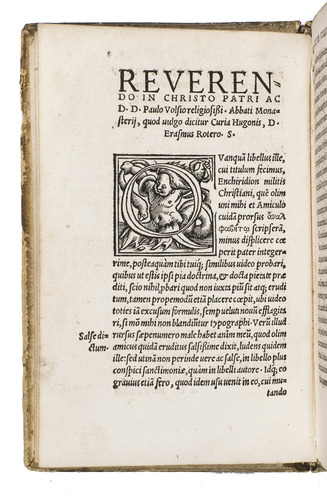 REVEREN-
DO IN CHRISTO PATRI AC
D. D. Paulo Volsio religiosiss. Abbati Mona-
sterij, quod uulgo dicitur Curia Hugonis, D.
Erasmus Rotero. S.
QVanquā libellus ille,
cui titulum fecimus,
Enchiridion militis
Christiani, quē olim
uni mihi et Amiculo
cuidā prorsus
scripserā,
minus displicere cœ
perit pater integer-
rime, posteaquàm tibi tuiq́; similibus uideo probari,
quibus ut est is ipsa pia doctrina, & docta pietate prædi
ti, scio nihil phari quod non iuxtà pium sit atq; erudi
tum, tamen propemodū etiā placere cœpit, ubi uideo
toties iā excusum formulis, semp uelut nouū efflagita
ri, si mō mihi non blandiūtur typographi. Verū illud
Salse di-
ctum.
rursus sæpenumero malè habet animū meū, quod olim
amicus quidā eruditus salsissimè dixit, ludens quidem
ille: sed utinā non perinde uerè ac salse, in libello plus
conspici sanctimoniæ, quàm in libelli autore. Idq́; eo
grauius etiā fero, quod idem usu uenit in eo, cui mu-
tando